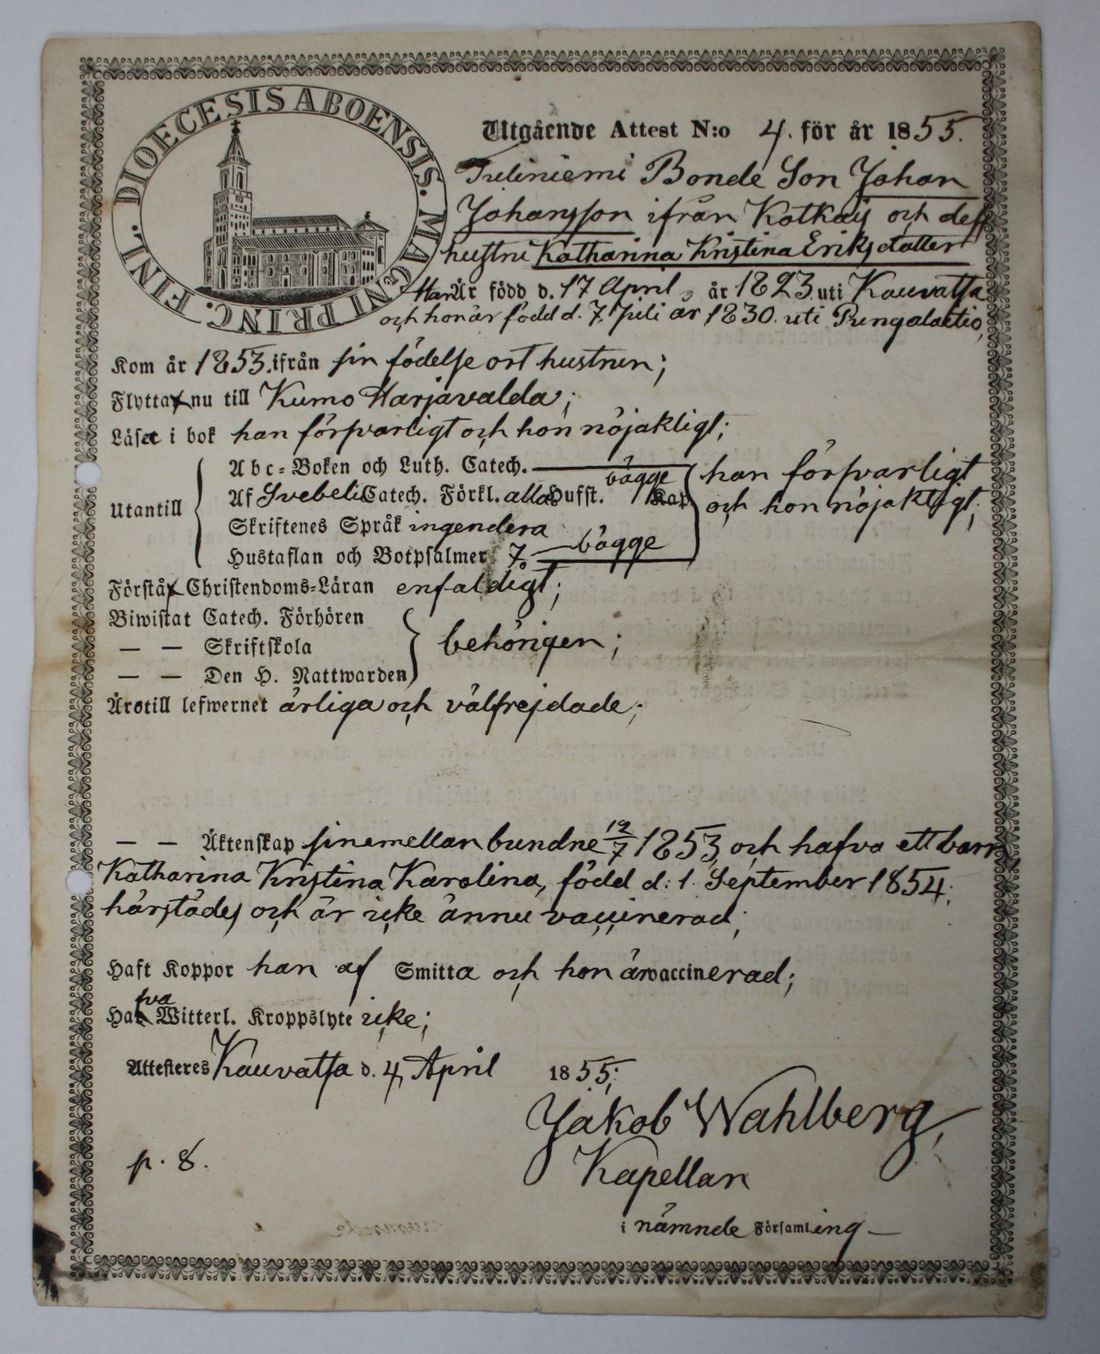 DIOECESIS ABOENSIS. MAGNI PRINC. FINL.
Utgående Attest N:o 4. för år 1855.
Bonde Son Johan
Johansson ifrån Kotkais och dess
hustru Katharina Kristina Eriksdotter
Han Är född d. 17 April, år 1823 uti Kauvatsa
och hon är född d. 7 Juli år 1830 uti Pungalaitio,
Kom år 1853 ifrån sin födelse ort hustrun;
Flytta nu till Kumo Harjavalda;
Läser i bok han försvarligt och hon nöjakligt;
Utantill
Abc-Boken och Luth. Catech. bägge
Af Svebeli Catech. Förkl. alla Hufst. Kap
Skriftenes Språk ingendera
Hustaflan och Botpsalmer 7. bägge
han försvarligt
och hon nöjakligt;
Förstå Christendoms-Läran enfaldigt;
Biwistat Catech. Förhören
— — Skriftskola
— — Den H. Nattwarden
behörigen;
Äro till lefwernet ärliga och välfrejdade;
— — Äktenskap sinemellan bundne 12/7 1853, och hafva ett barn
Katharina Kristina Karolina, född d: 1. September 1854.
härstädes och är icke ännu vaccinerad;
Haft Koppor han af Smitta och hon är vaccinerad;
Hafva Witterl. Kroppslyte icke;
Attesteres Kauvatsa d. 4 April 1855;
Jakob Wahlberg,
p. 8.
Kapellan
i nämnde Församling